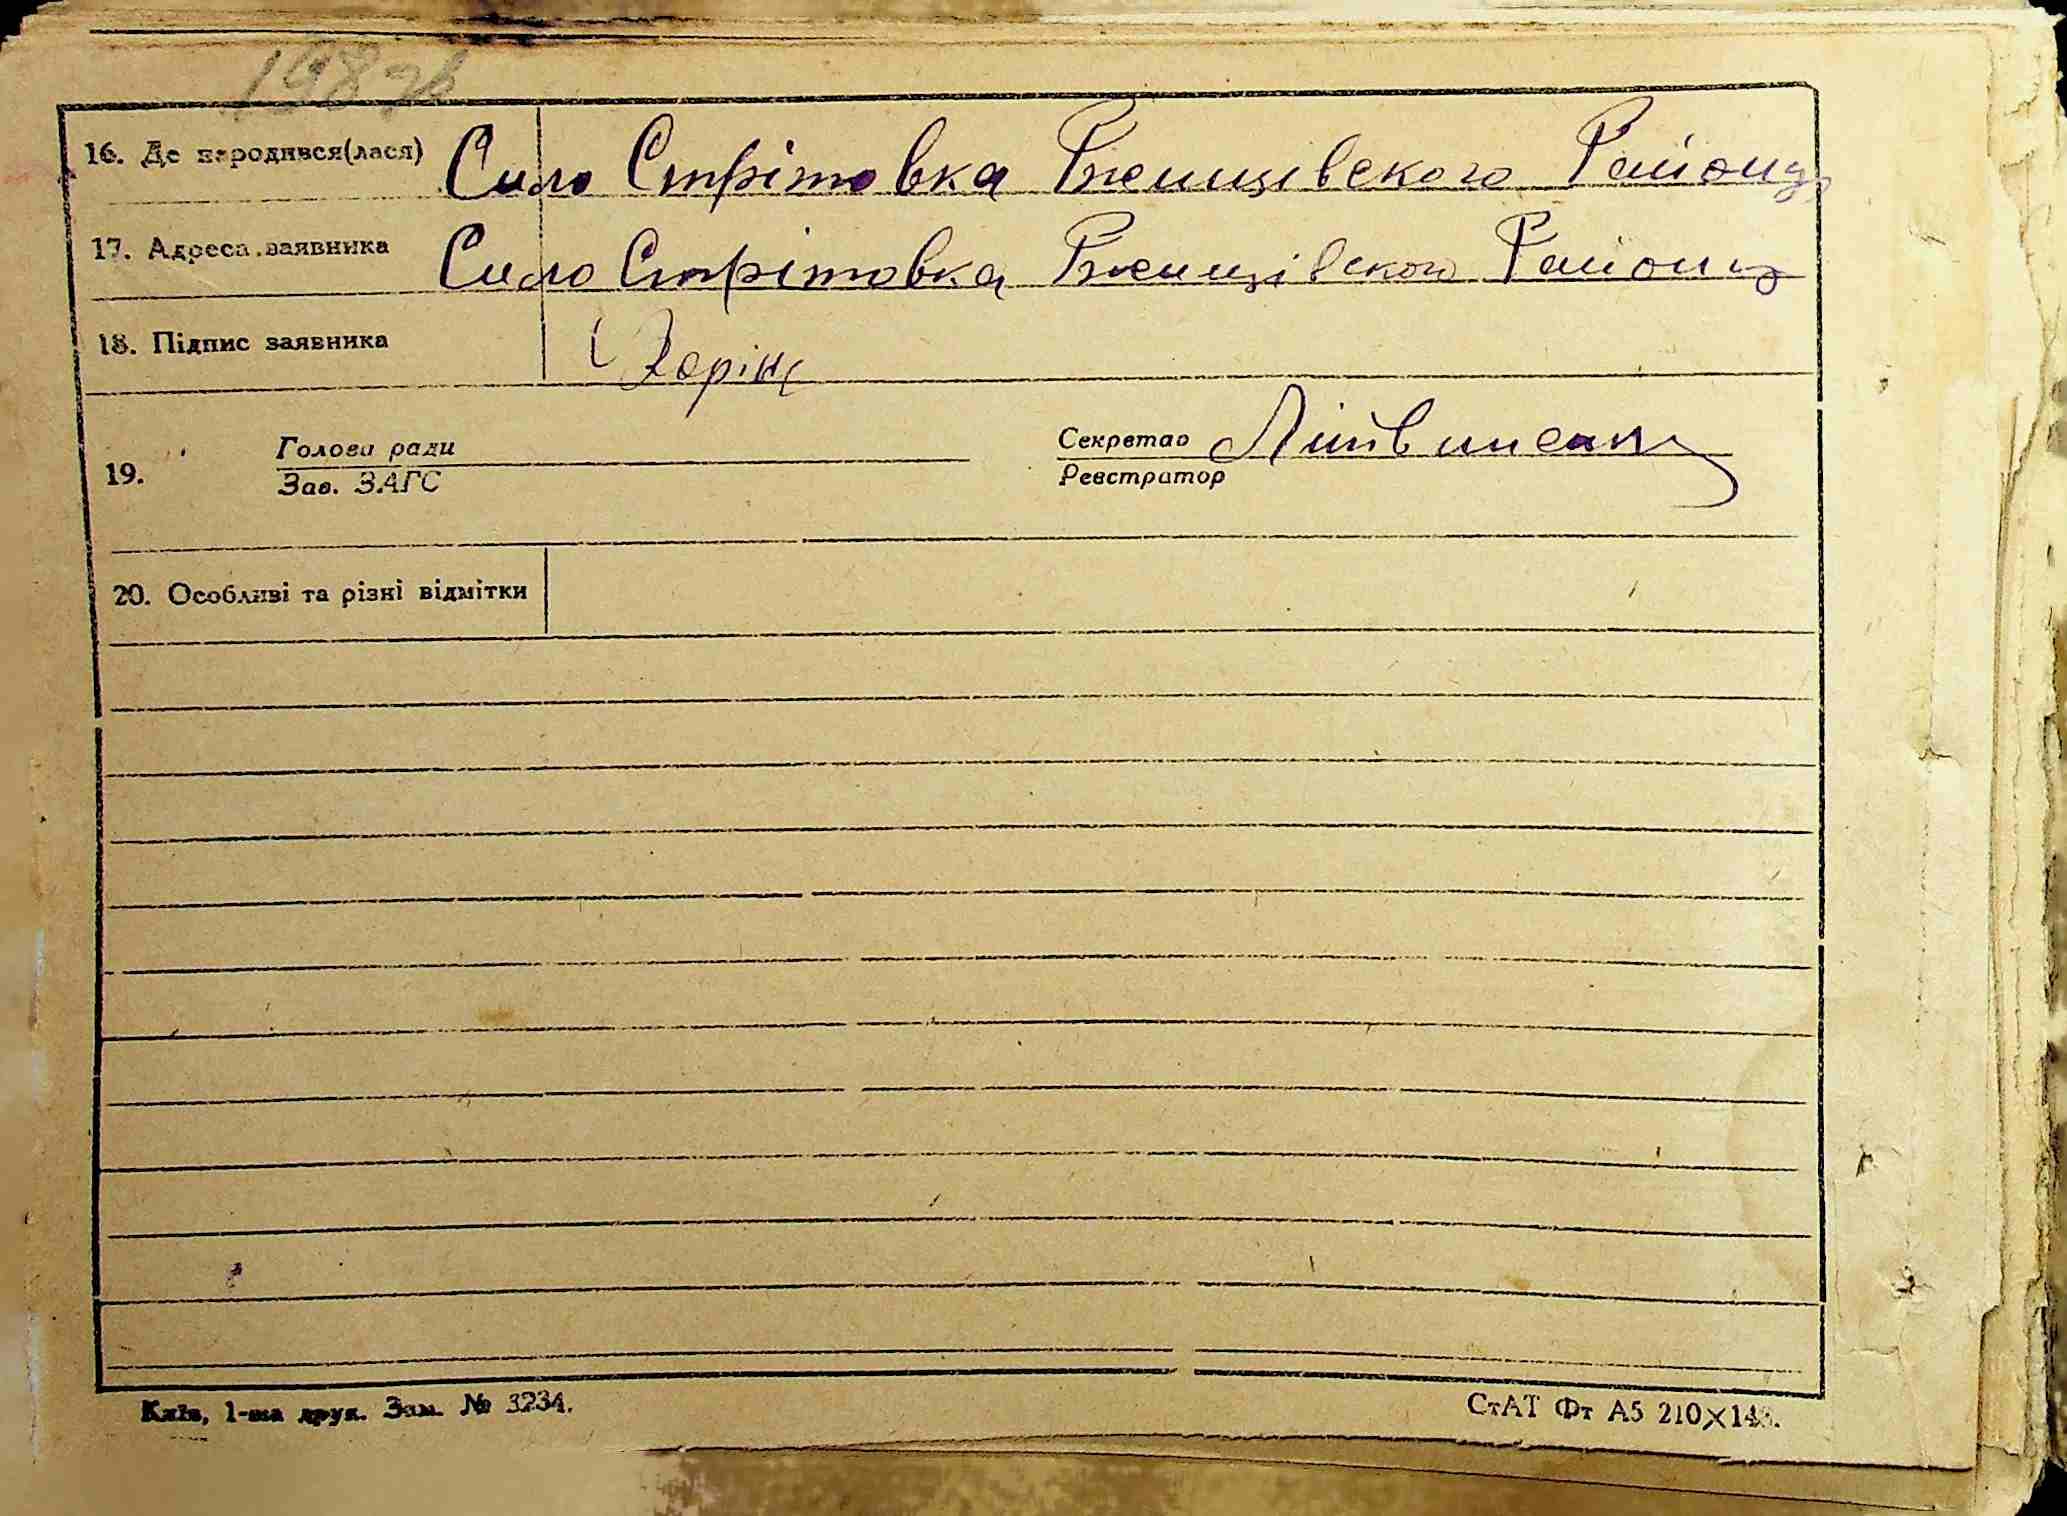 198
16. Де народився(лася) Сило Стрітовка Ржищівского Району
17. Адреса заявника Сило Стрітовка Ржищівского Району
18. Підпис заявника
19. Голова ради Секретар
Зав. ЗАГС Реєстратор
20. Особливі та різні відмітки
Київ, 1-ша друк. Зам. № 3234. СтАТ Фт А5 210×148.